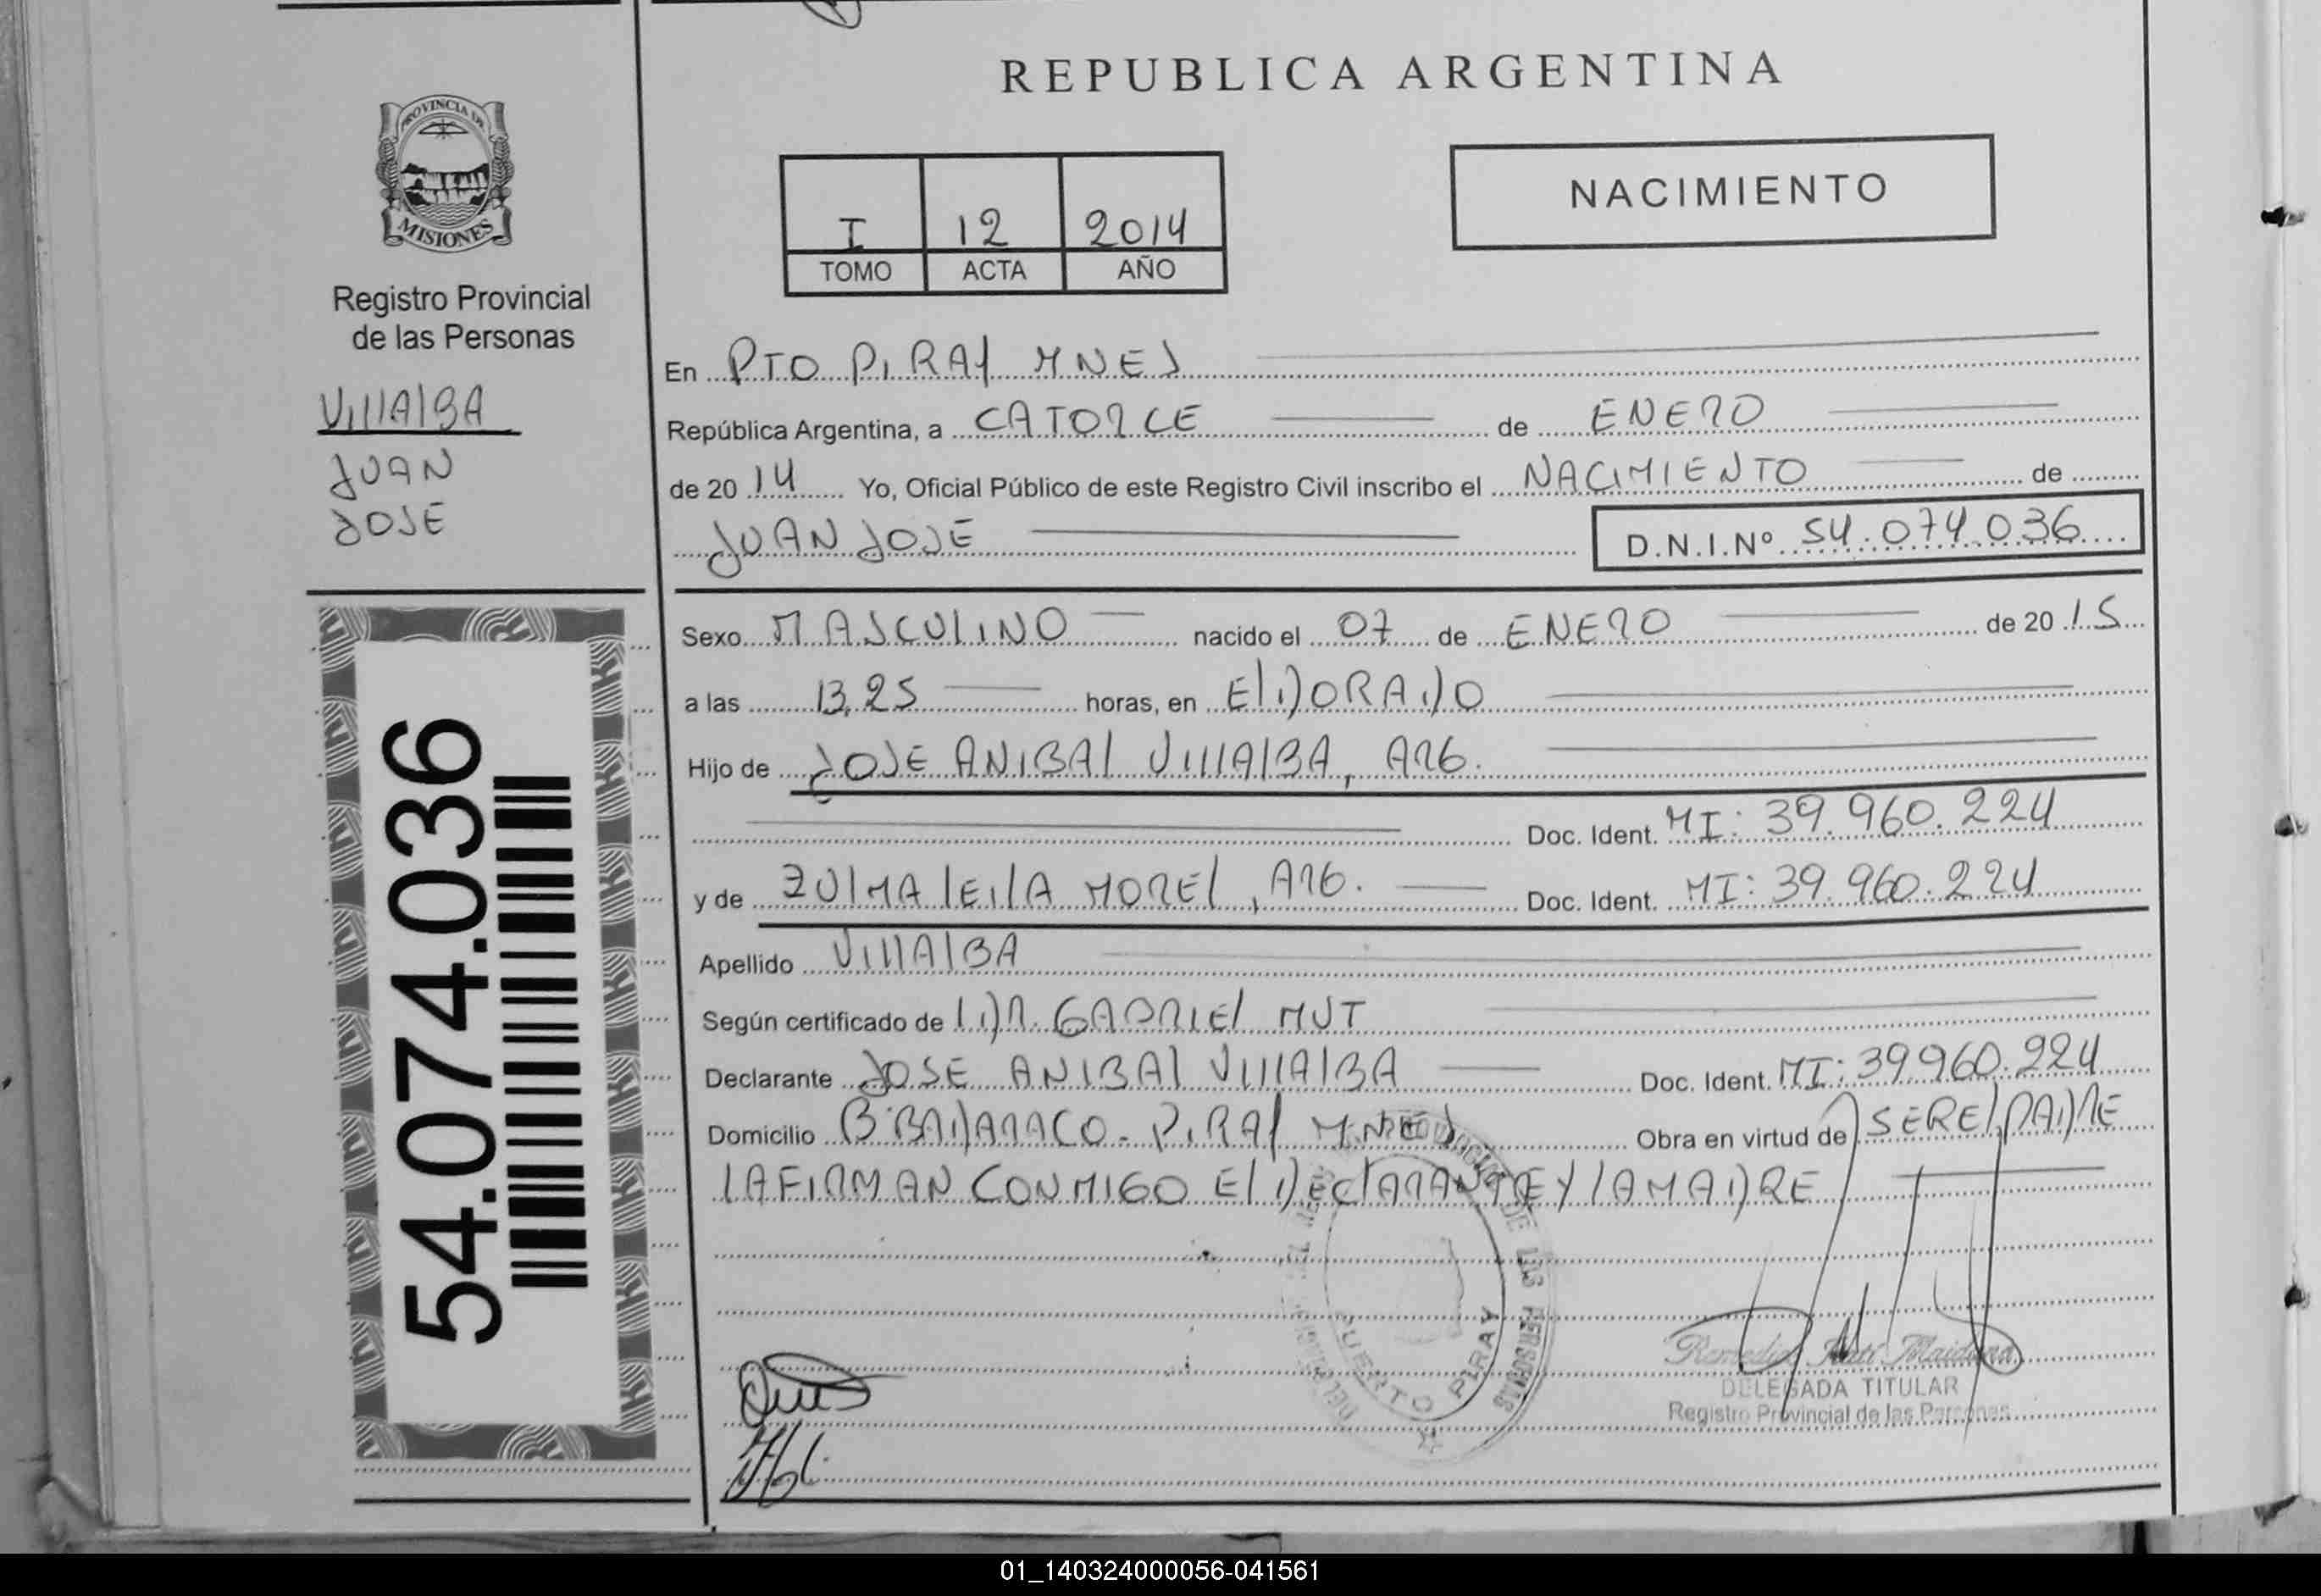 REPUBLICA ARGENTINA
PROVINCIA DE
MISIONES
Registro Provincial
de las Personas
VILLALBA
JUAN
JOSE
54.074.036
I 12 2014
TOMO ACTA AÑO
NACIMIENTO
En PTO PIRAY MNES
República Argentina, a CATORCE de ENERO
de 20 14 Yo, Oficial Público de este Registro Civil inscribo el NACIMIENTO de
JUAN JOSE D.N.I.Nº 54.074.036
Sexo MASCULINO nacido el 07 de ENERO de 20 15
a las 13,25 horas, en ElDORADO
Hijo de JOSE ANIBAL VILLALBA, ARG.
Doc. Ident. MI: 39.960.224
y de ZULMA LEILA MOREL, ARG. Doc. Ident. MI: 39.960.224
Apellido VILLALBA
Según certificado de LDR. GABRIEL MUT
Declarante JOSE ANIBAL VILLALBA Doc. Ident. MI: 39960.224
Domicilio Bº BAJADA RACO - PIRAY MNES Obra en virtud de SER EL PADRE
LA FIRMAN CONMIGO EL DECLARANTE Y LA MADRE
DE LAS PERSONAS
PUERTO PIRAY
DELEGADA TITULAR
Registro Provincial de las Personas
01_140324000056-041561